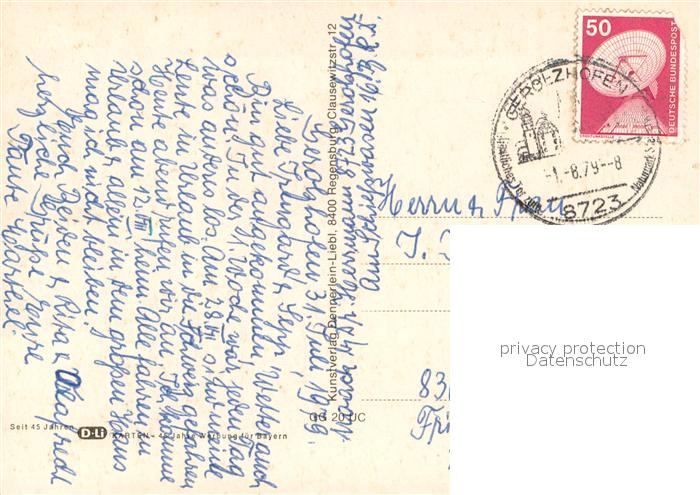 Gerolzhofen, 31. Juli 1979.
Liebe Irmgard & Sepp,
Bin gut angekommen, Wetter auch
schön. In der 1. Woche war jeden Tag
was anders los. Am 28. sind viele
Leute in Urlaub in die Schweiz gefahren
Heute abend rufen wir an. Ich komme
schon am 2. VIII heim. Alle fahren in
Urlaub & allein in dem großen Haus
mag ich nicht bleiben.
Euch Beiden & Rita &
herzliche Grüße Eure
Tante
Kunstverlag Dennerlein-Liebl, 8400 Regensburg, Clausewitzstr. 12
GG 20 UC
Seit 45 Jahren
D-Li
KARTEN - 45 Jahre Werbung für Bayern
50
DEUTSCHE BUNDESPOST
GEROLZHOFEN
-1.-8.79--8
8723
Herrn & Frau
J.
83
Fri
privacy protection
Datenschutz